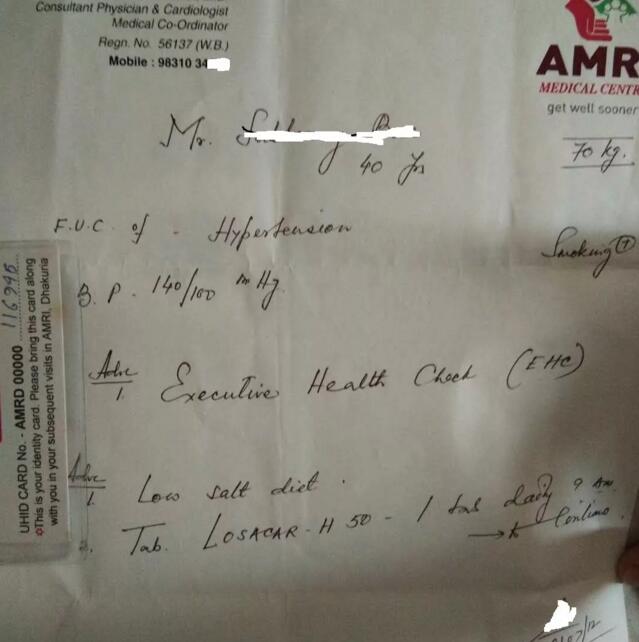 Consultant Physician & Cardiologist
Medical Co-Ordinator
Regn. No. 56137 (W.B.)
Mobile : 98310 34
AMR
MEDICAL CENTR
get well sooner
Mr.
40 Yrs
70 kg.
F.U.C. of - Hypertension
Smoking (+)
B.P. - 140/100 mm Hg.
Adve
1. Executive Health Check (EHC)
Adve
1. Low salt diet.
2. Tab. LOSACAR-H 50 - 1 tab daily 9 Am.
→ to Continue.
UHID CARD No. - AMRD 00000 116946
This is your identity card. Please bring this card along
with you in your subsequent visits in AMRI, Dhakuria